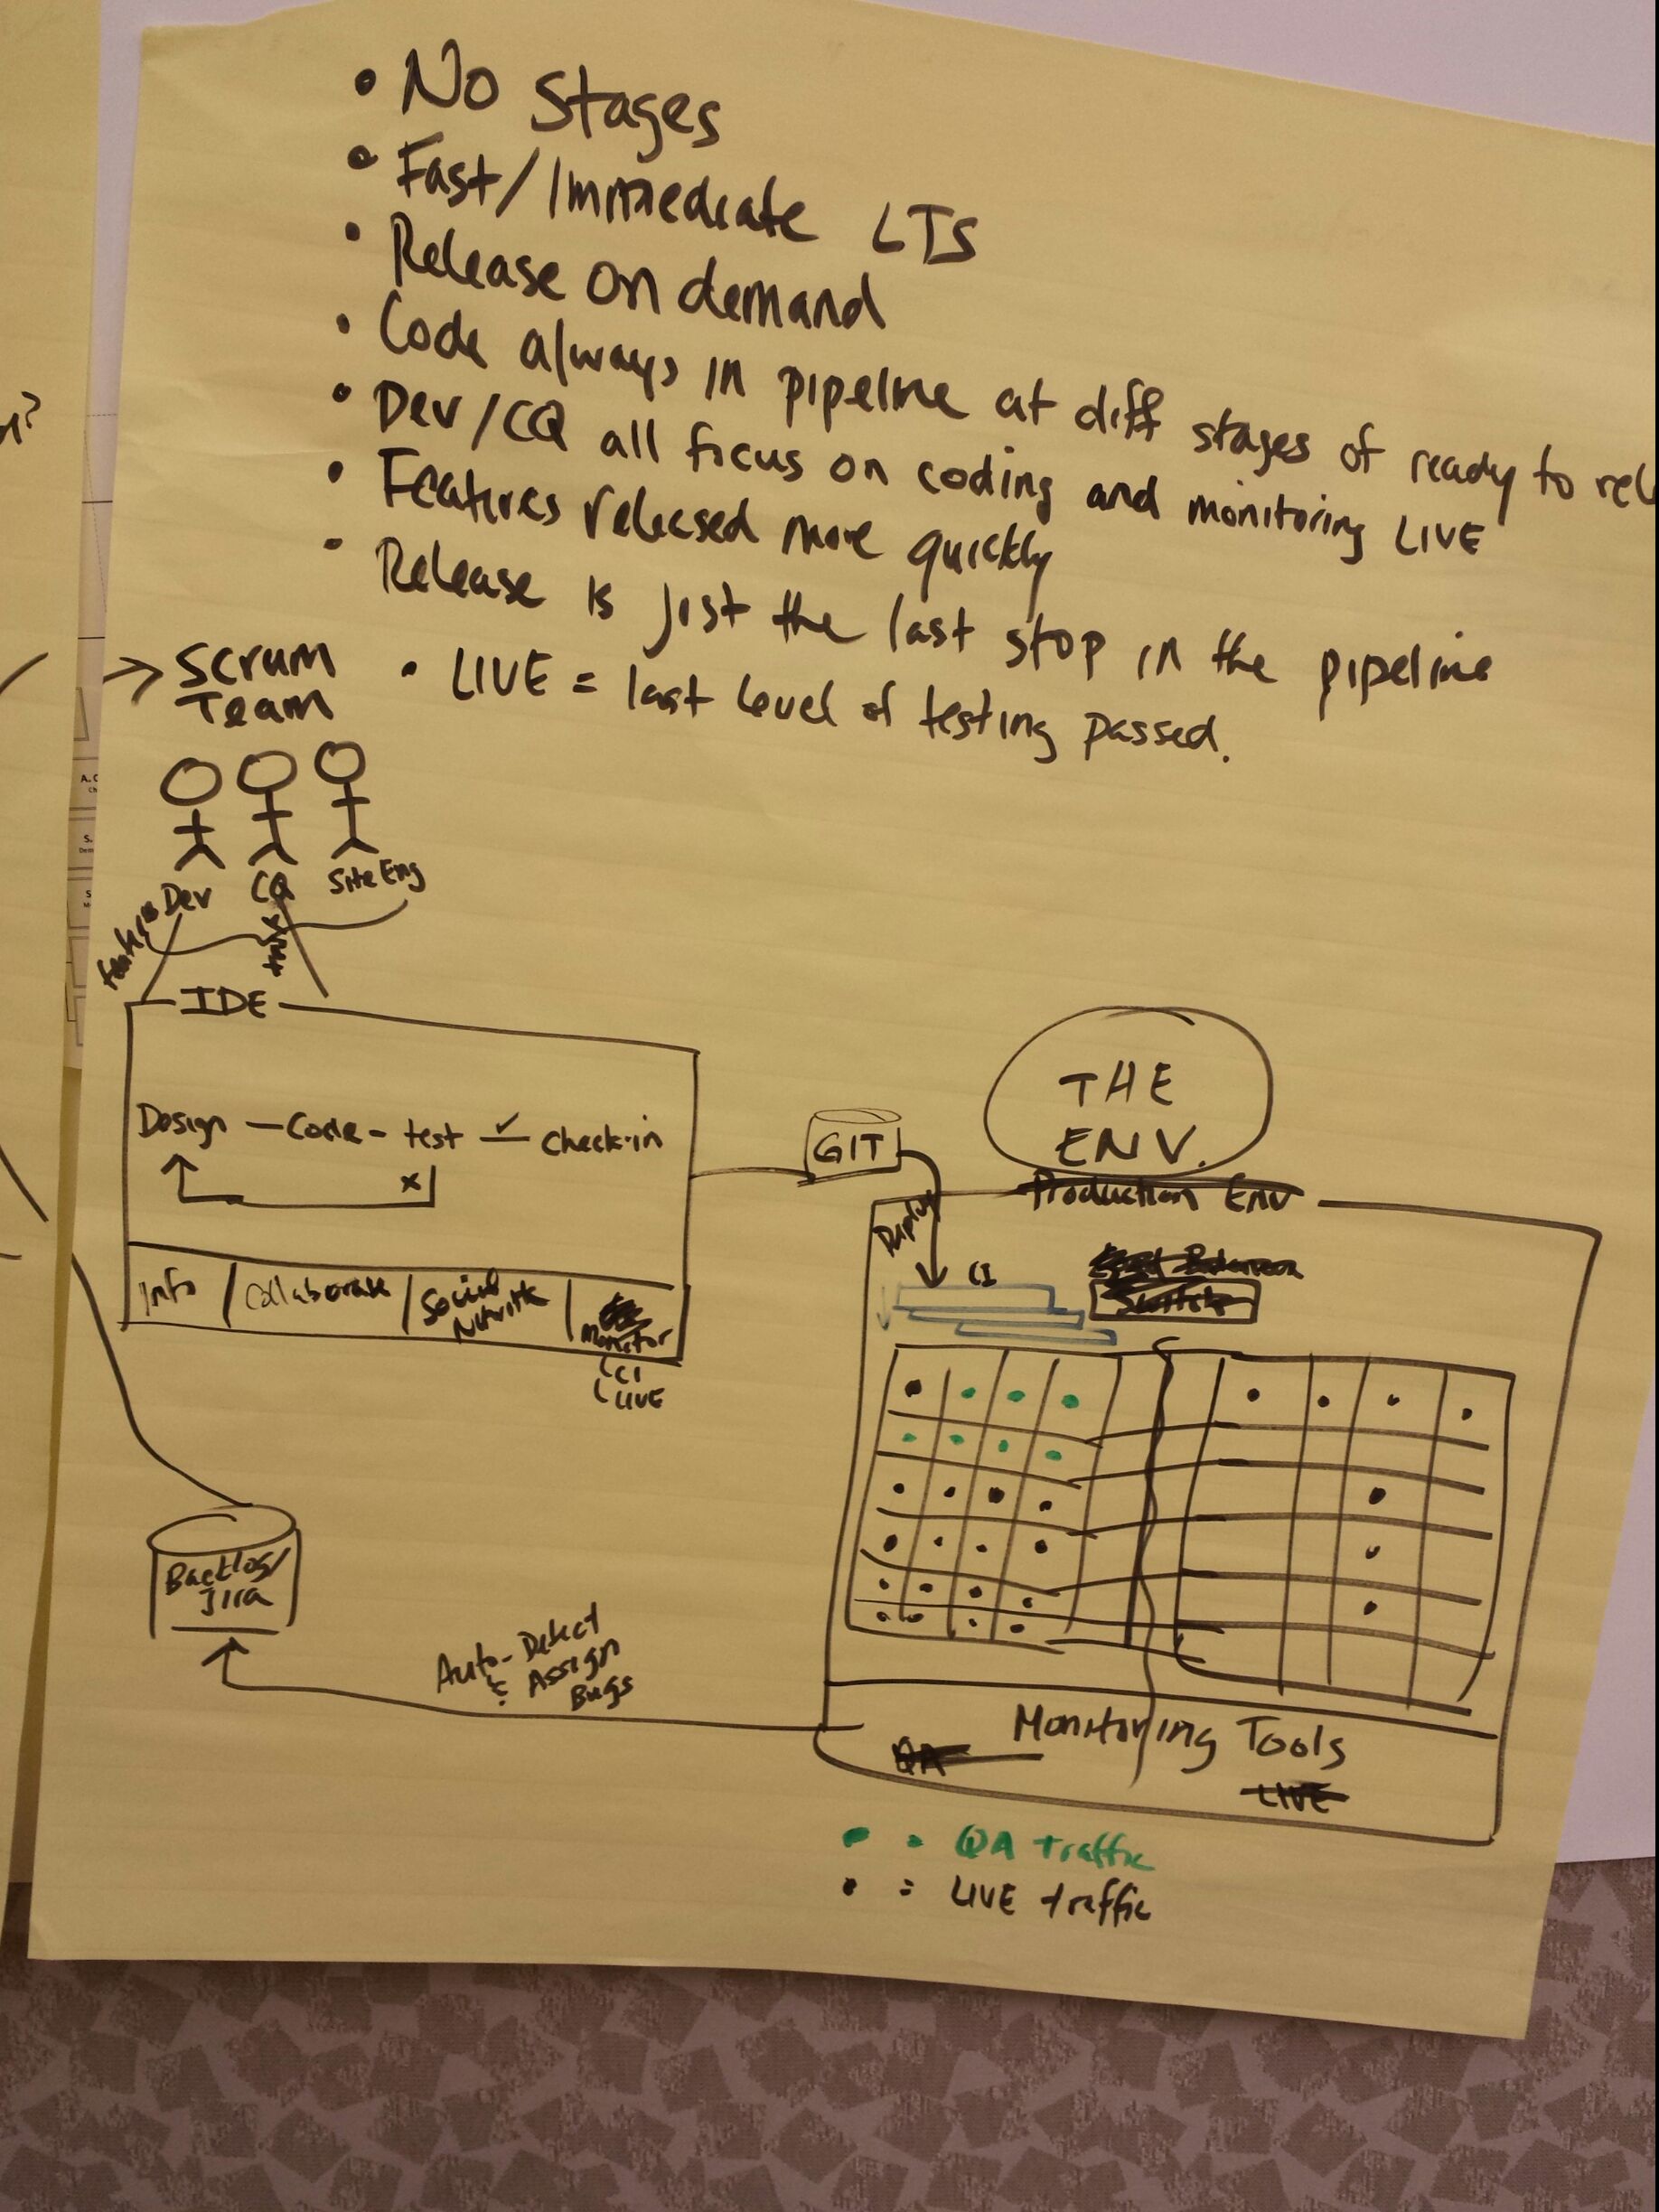 • No Stages
• Fast/Immediate LTS
• Release on demand
• Code always in pipeline at diff stages of ready to rel
• Dev/CQ all focus on coding and monitoring LIVE
• Features released more quickly
• Release is just the last stop in the pipeline
• LIVE = last level of testing passed.
→ Scrum
Team
Dev CQ Site Eng
Features
IDE
Design — Code - test ✓ check-in
x
Info / Collaborate / Social Network / Monitor
CI
LIVE
GIT
THE
ENV.
Production Env
Deploy
CI
Switch
Backlog/
Jira
Auto-Detect
& Assign
Bugs
Monitoring Tools
QA
LIVE
• = QA traffic
• = LIVE traffic